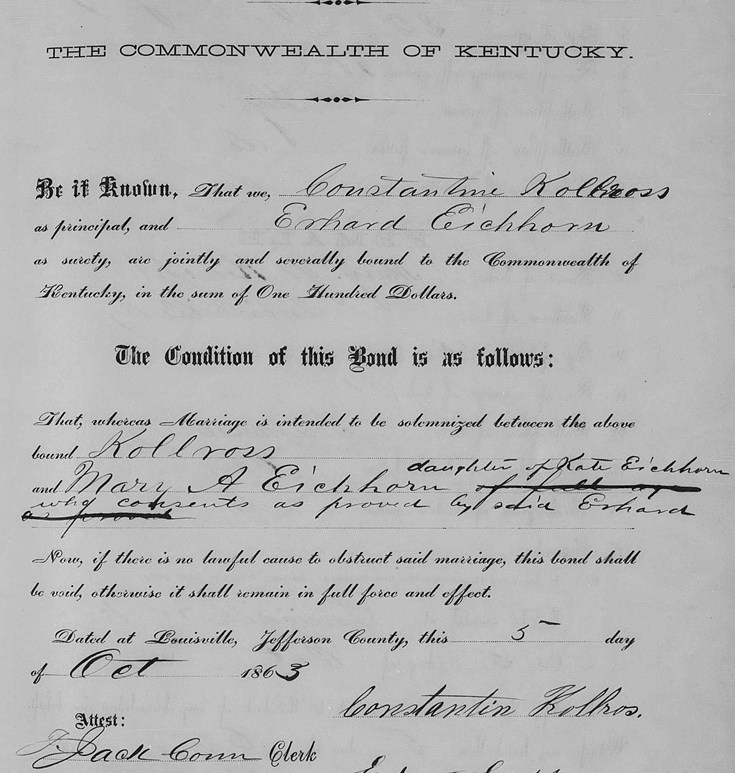 THE COMMONWEALTH OF KENTUCKY.
Be it Known, That we, Constantine Kollross
as principal, and Erhard Eichhorn
as surety, are jointly and severally bound to the Commonwealth of
Kentucky, in the sum of One Hundred Dollars.
The Condition of this Bond is as follows:
That, whereas Marriage is intended to be solemnized between the above
bound Kollross
daughter of Kate Eichhorn
and Mary A Eichhorn of full age
who consents as proved by said Erhard
Now, if there is no lawful cause to obstruct said marriage, this bond shall
be void, otherwise it shall remain in full force and effect.
Dated at Louisville, Jefferson County, this 5 day
of Oct 1863
Constantin Kollros.
Attest:
Jack Conn Clerk